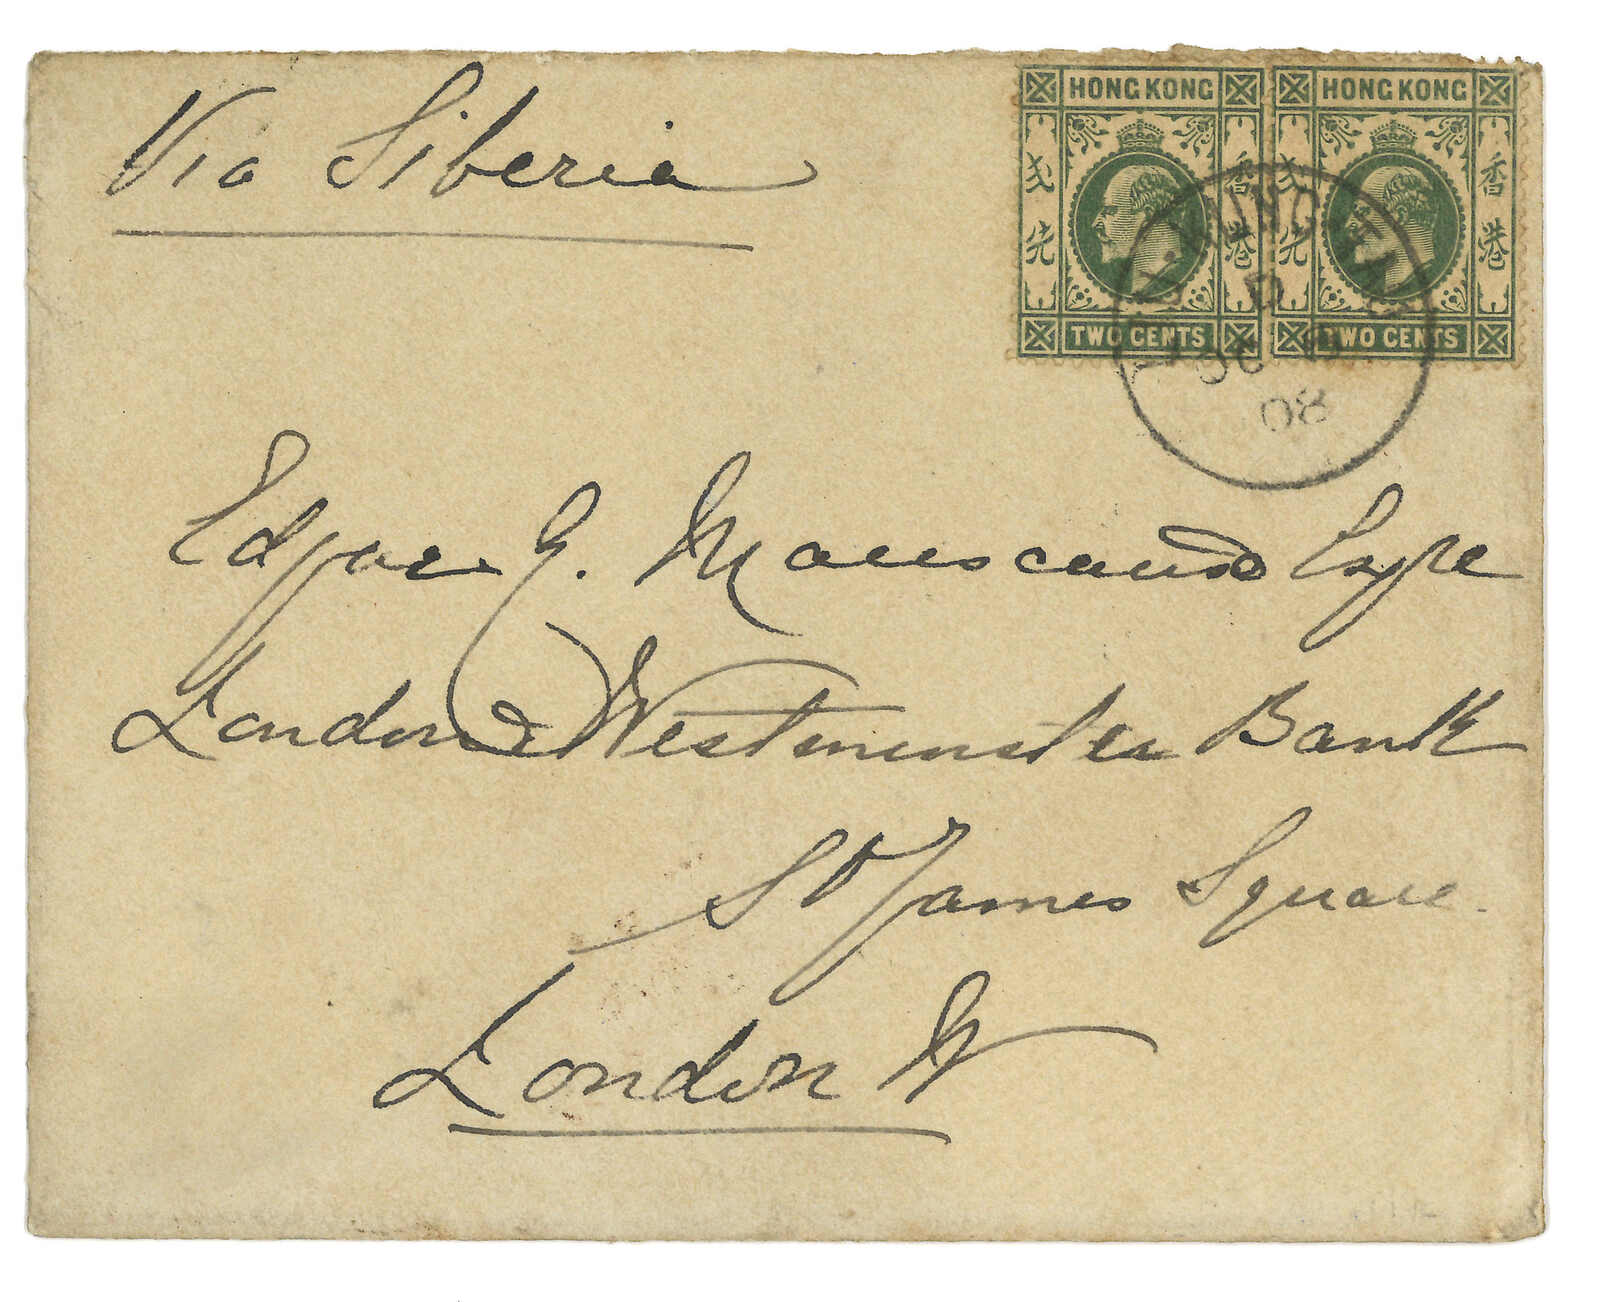 Via Siberia
HONG KONG HONG KONG
香港 香港
先 先
TWO CENTS TWO CENTS
D
OC
08
Edgar G. Esqre
London & Westminster Bank
St James Square.
London W